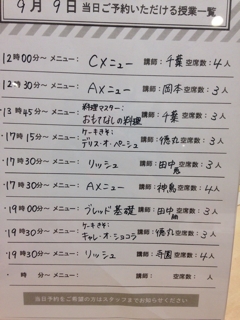 9月9日 当日ご予約いただける授業一覧
12時00分～ メニュー: Cメニュー 講師: 千葉 空席数: 4人
12時30分～ メニュー: Aメニュー 講師: 岡本 空席数: 3人
13時45分～ メニュー: 料理マスター:
おもてなしの料理 講師: 千葉 空席数: 3人
17時15分～ メニュー: ケーキさき:
デリス・オ・ペーシュ 講師: 徳丸 空席数: 3人
17時30分～ メニュー: リッシュ 講師: 田中 空席数: 3人
17時30分～ メニュー: Aメニュー 講師: 神島 空席数: 4人
19時00分～ メニュー: ブレッド基礎 講師: 田中 空席数: 3人
19時30分～ メニュー: ケーキさき:
ギャレ・オ・ショコラ 講師: 徳丸 空席数: 3人
19時30分～ メニュー: リッシュ 講師: 寺園 空席数: 4人
時 分～ メニュー: 講師: 空席数: 人
当日予約をご希望の方はスタッフまでお知らせください